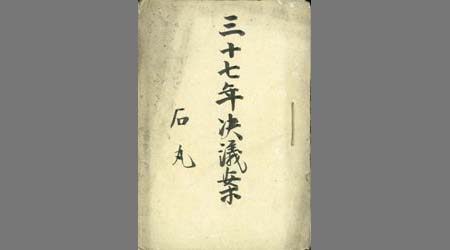 三十七年决議案
石丸